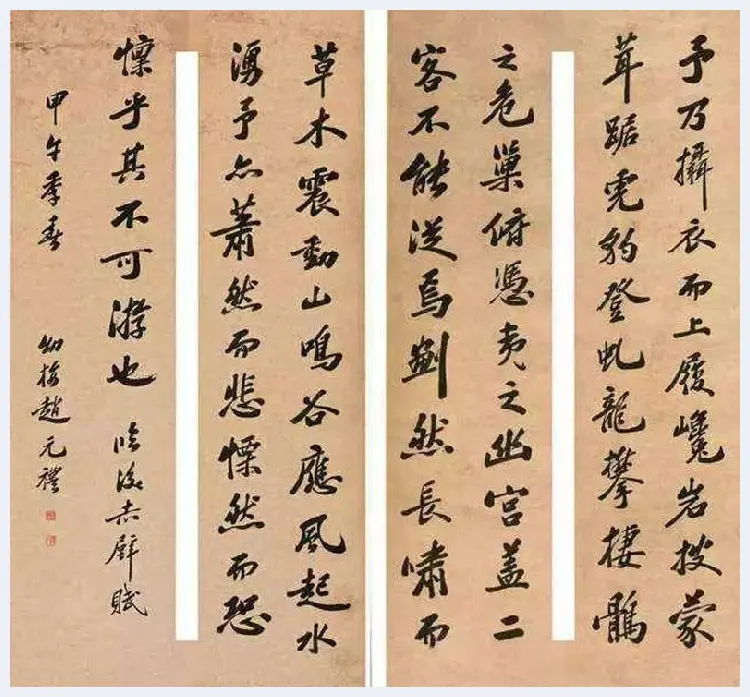 予乃攝衣而上履巉岩披蒙
茸踞虎豹登虬龍攀棲鶻
之危巢俯憑夷之幽宮盖二
客不能從焉劃然長嘯而
草木震動山鳴谷應風起水
湧予亦蕭然而悲慄然而恐
懍乎其不可游也 臨後赤壁賦
甲午季春 幼梅趙元禮